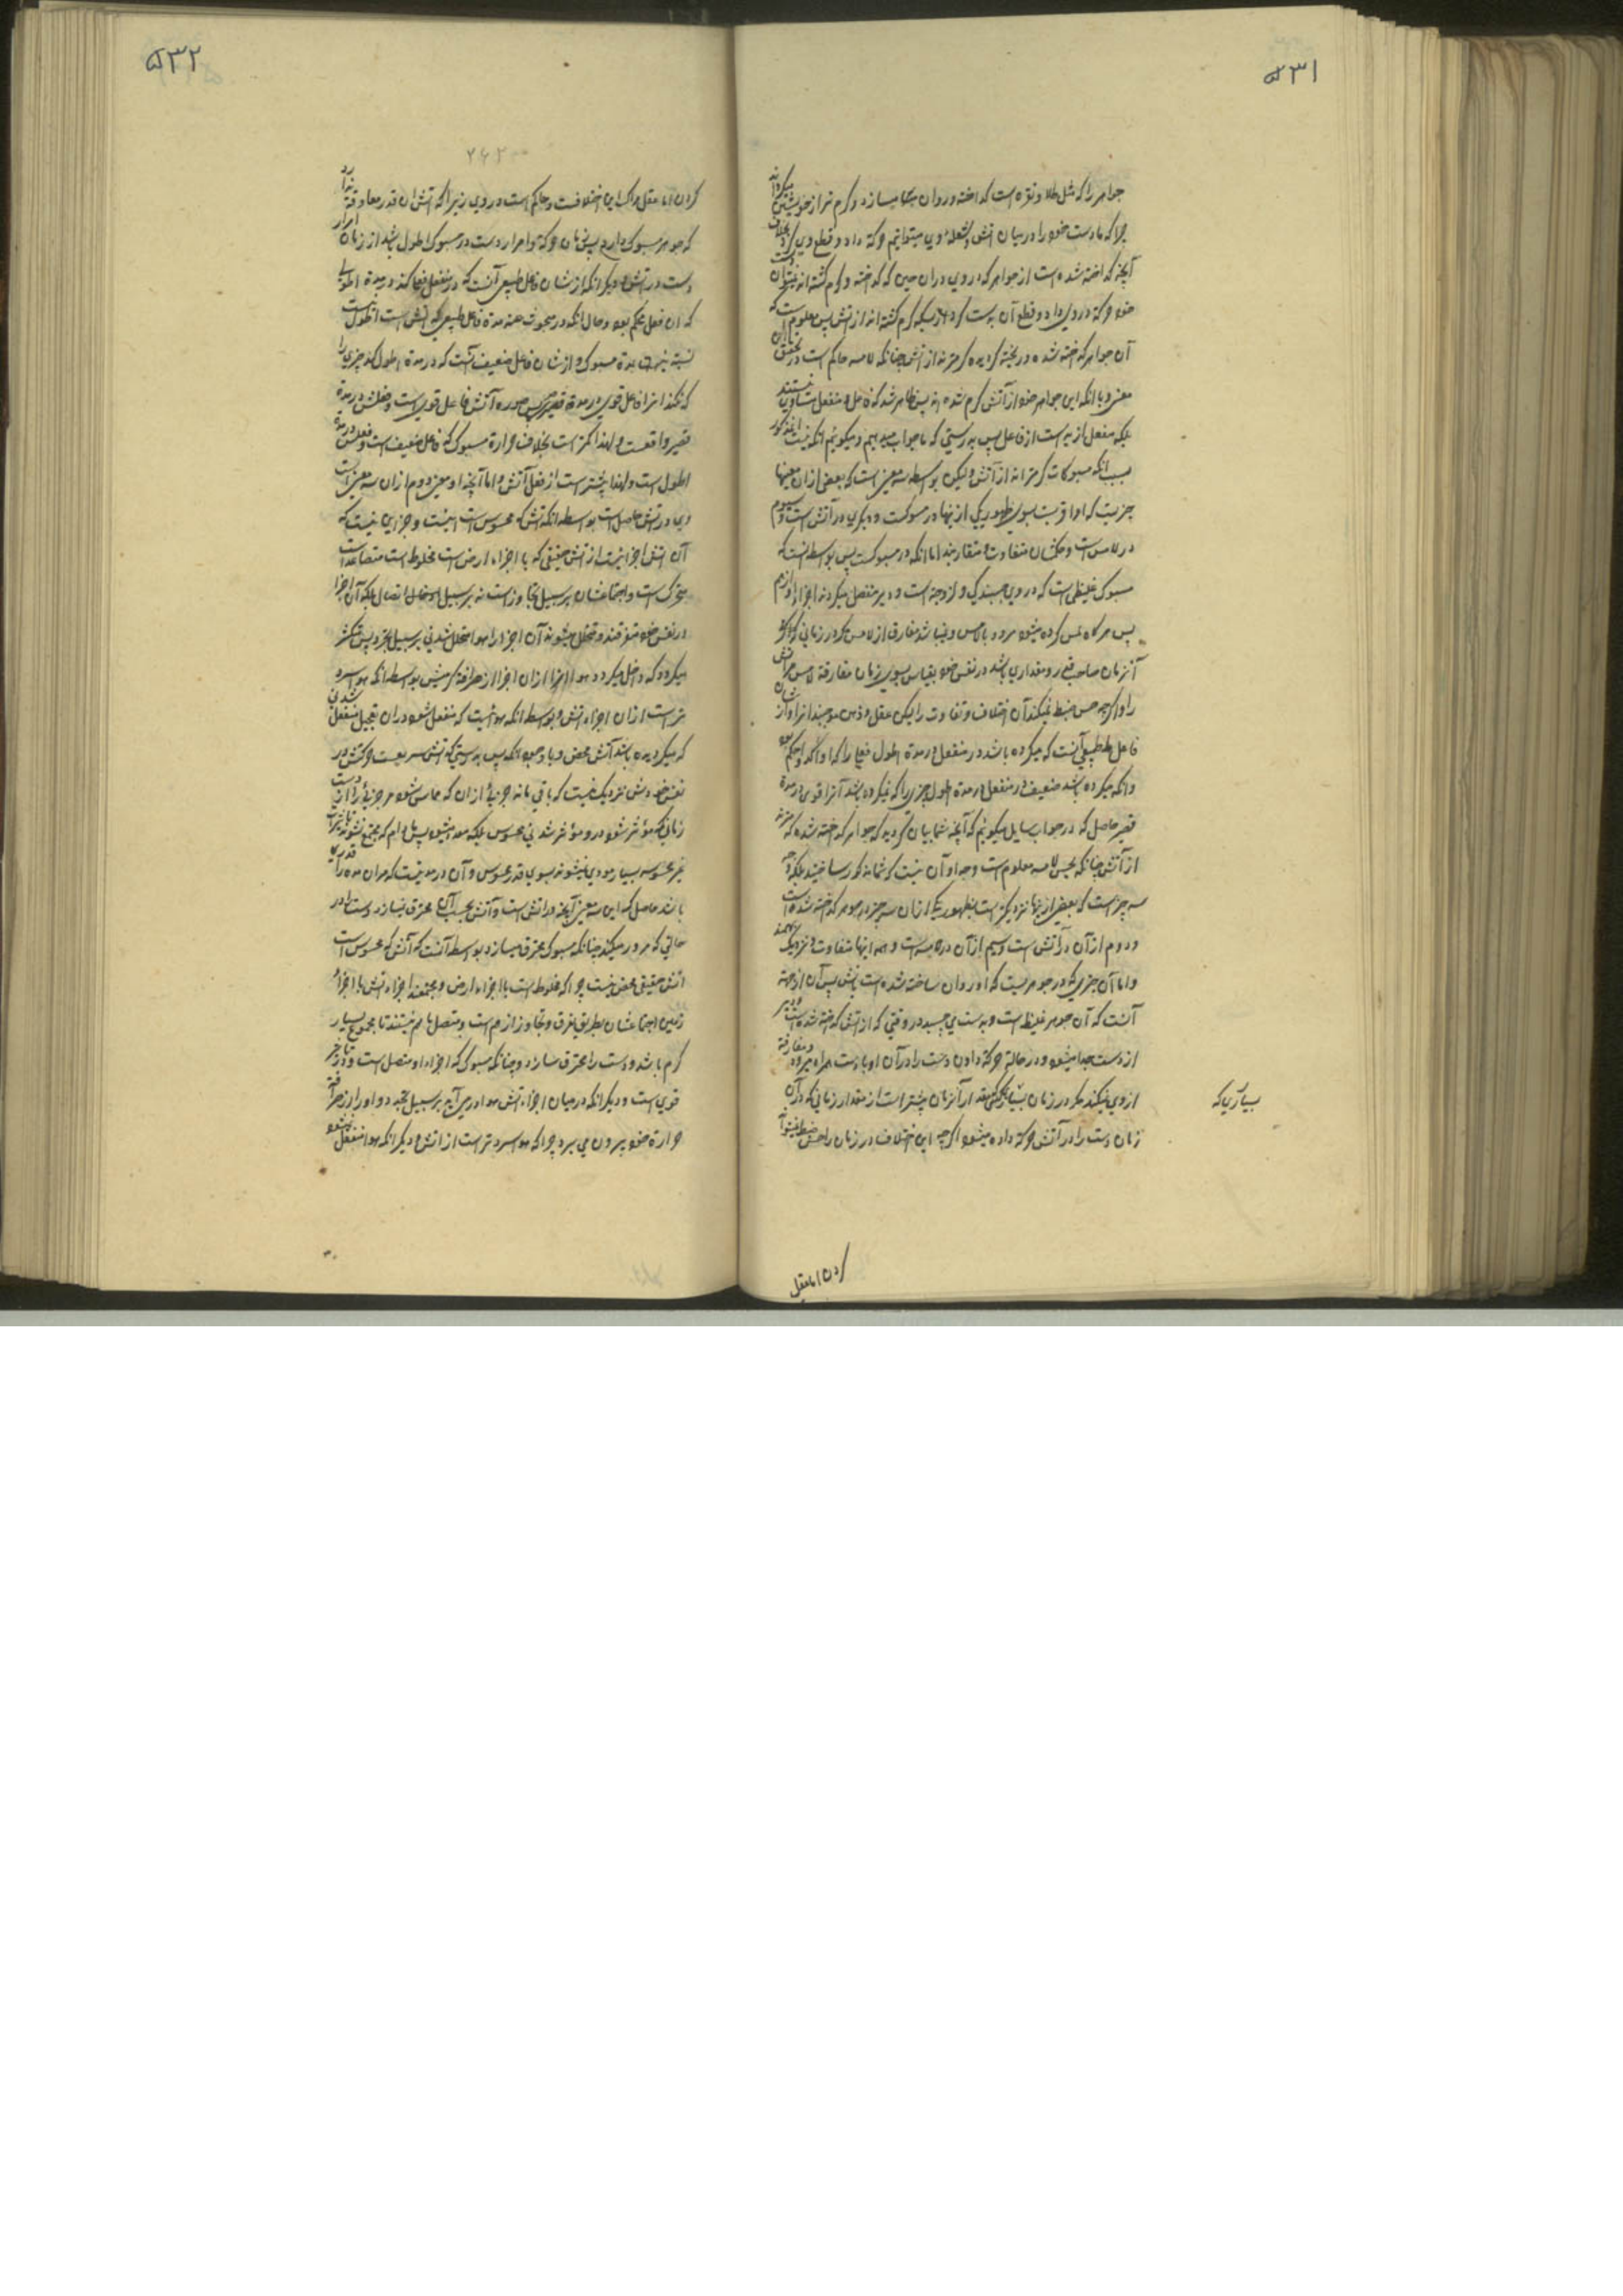 ۵۳۱
جواهر را که مثل طلا و نقره است کداخته و روان میسازد و کرم تر از خویشتن میکرداند
چرا که ما دست خود را در میان آتش و شعلهٔ وی میتوانیم حرکة داد و قطع وی کرد بخلاف
آنچه کداخته شده است از جواهر که در وی دران حین که کداخته و کرم کشته اند نمیتوان دست
خود حرکة در وی داد و قطع آن بدست کرد کرم کشته اند از آتش پس معلوم است که
آن جواهر کداخته شده و ریخته کردیده کرمترند از آتش چنانکه لامسه حاکم است در تحقق این
معنی و با انکه این جواهر خود از آتش کرم شده اند پس ظاهر شد که فاعل و منفعل متساوی نیستند
بلکه منفعل ازید است از فاعل پس بدرستی که ما جواب میدهیم و میکوئیم انکه نیست
بسبب انکه مسبوکات کرمتراند از آتش ولیکن بواسطه سه معنی است که بعضی ازان معنیها
چیزیست که او اقربست بسوی ظهور یکی از ینها در مسبوکست و دیکری در آتش است و سیوم
در لامس است و حکمشان متفاوت و متقاربند اما انکه در مسبوکست پس بواسطه انست که
مسبوک غلیظی است که در وی چسبندکی و لزوجة است و دیر منفصل میکردند اجزاء او از هم
پس هرکاه لمس کرده میشود مرو را بلامس و نباشد مفارق از لامس مکر در زمانی که
آنزمان صاحب قدر و مقداری باشد در نفس خود بقیاس بسوی زمان مفارقة لامس مر آتش
را و اکرچه حس ضبط نمیکند آن اختلاف و تفاوت را لیکن عقل و ذهن موجبند انرا و از شان
فاعل طبیعی آنست که میکرده باشد در منفعل در مدة اطول فعلی را که او اکد و احکم بود
و انکه میکرده باشد ضعیف در منفعل در مدة اطول چیزی را که نمیکرده باشد آنرا قوی در مدة
قصیر حاصل که در جواب سایل میکوئیم که آنچه شما بیان کردید که جواهر کداخته شده کرمترند
از آتش چنانکه بحس لامسه معلوم است وجه او آن نیست که شما مذکور ساختید بلکه وجه
سه چیز است که بعضی از ینها نزدیکتر است بظهور یکی ازان سه چیز در جوهر کداخته شده است
و دوم از آن در آتش است و سیم از آن در لامسه است و همه اینها متفاوت و نزدیک بهمند
و اما آن چیزی که در جوهریست که او روان ساخته شده است پس آن از جهة
آنست که آن جوهر غلیظ است و بدست می چسبد در وقتی که از آتش کداخته شده است و دیر
از دست جدا میشود و در حالة حرکة دادن دست را در آن او با دست همراه میرود و مفارقة
ازوی نمیکند مکر در زمان بسیاری که مقدار آنزمان بیشتر است از مقدار زمانی که در آن
زمان دست را در آتش حرکة داده میشود اکرچه این اختلاف در زمان را حس ضبط نمیتواند
بسیاری که
کردن اما عقل
۵۳۲
۲۶۲
کردن اما عقل مدرک این اختلافست و حاکم است در وی زیرا که آتش ان قدر معاوقة ندارد
که جوهر مسبوک دارد پس زمان حرکة و امرار دست در مسبوک اطول باشد از زمان امرار
دست در آتش و دیکر انکه از شان فاعل طبیعی آنست که در منفعل فعل کند در مدة اطول
که ان فعل محکم بود و حال انکه در مبحوث عنه مدة فاعل طبیعی که آتش است اطول نیست
نسبة بمدة مسبوک و از شان فاعل ضعیف آنست که در مدة اطول کند چیزی را
که نکند انرا فاعل قوی در مدة قصیر پس در صورة آتش فاعل قوی است و فعلش در مدة
قصیر واقعست و لهذا کمتر است بخلاف حرارة مسبوک که فاعل ضعیف است و فعلش در مدة
اطول است و لهذا بیشتر است از فعل آتش و اما آنچه او معنی دوم ازان سه معنی است
و در آتش حاصل است بواسطه انکه آتش که محسوس است اینست و جز این نیست که
آن آتش اجزائیست از آتش حقیقی که با اجزاء ارض است مخلوط است متصاعد است
متحرک است و اجتماعشان بر سبیل تجاوز است نه بر سبیل اتصال بلکه آن اجزا
در نفس خود متفرقند و متخلل میشوند آن اجزا را هوا متخلل شدنی بر سبیل تجدد پس منکسر
میکردد که داخل میکردد هوا ازان اجزا از صرافة کرمیش بواسطه انکه هوا سرد
تر است ازان اجزاء آتش و بواسطه انکه هوائیست که منفعل شود دران تعجیل منفعل شدنی
که میکردیده باشد آتش محض و با وجود انکه پس بدرستی که آتش سریعست حرکتش در
نفس خودش نزدیک نیست که باقی ماند جزئی ازان که مماس شود مر جزئی را از دست
زمانی که مؤثر شود در و مؤثر شدنی محسوس بلکه متجدد میشود پس مادام که مجتمع نشوند تاثیرات
غیر محسوسه بسیار مؤدی نمیشوند بسوی قدر محسوس و آن در مدتیست که مران مدة را قدری
باشد حاصل که این سه معنی آنچه در آتش است و آتش بحسب آن محرق نمیسازد دست را در
حالتی که مرور میکند چنانکه مسبوک محرق میسازد بواسطه آنست که آتش که محسوس است
آتش حقیقی محض نیست چرا که مخلوط است با اجزاء ارض و مجتمعند اجزاء آتش با اجزاء
زمین اجتماعشان بطریق تفرق و تجاوز از هم است و متصل با هم نیستند تا مجموع بسیار
کرم باشد و دست را محرق سازد و چنانکه مسبوک که اجزاء او متصل است و در تاثیر
قوی است و دیکر انکه در میان اجزاء آتش هوا در می آید بر سبیل تجدد و او را از صرافة
حرارة خود بیرون می برد چرا که هوا سردتر است از آتش و دیکر انکه هوا منفعل میشود